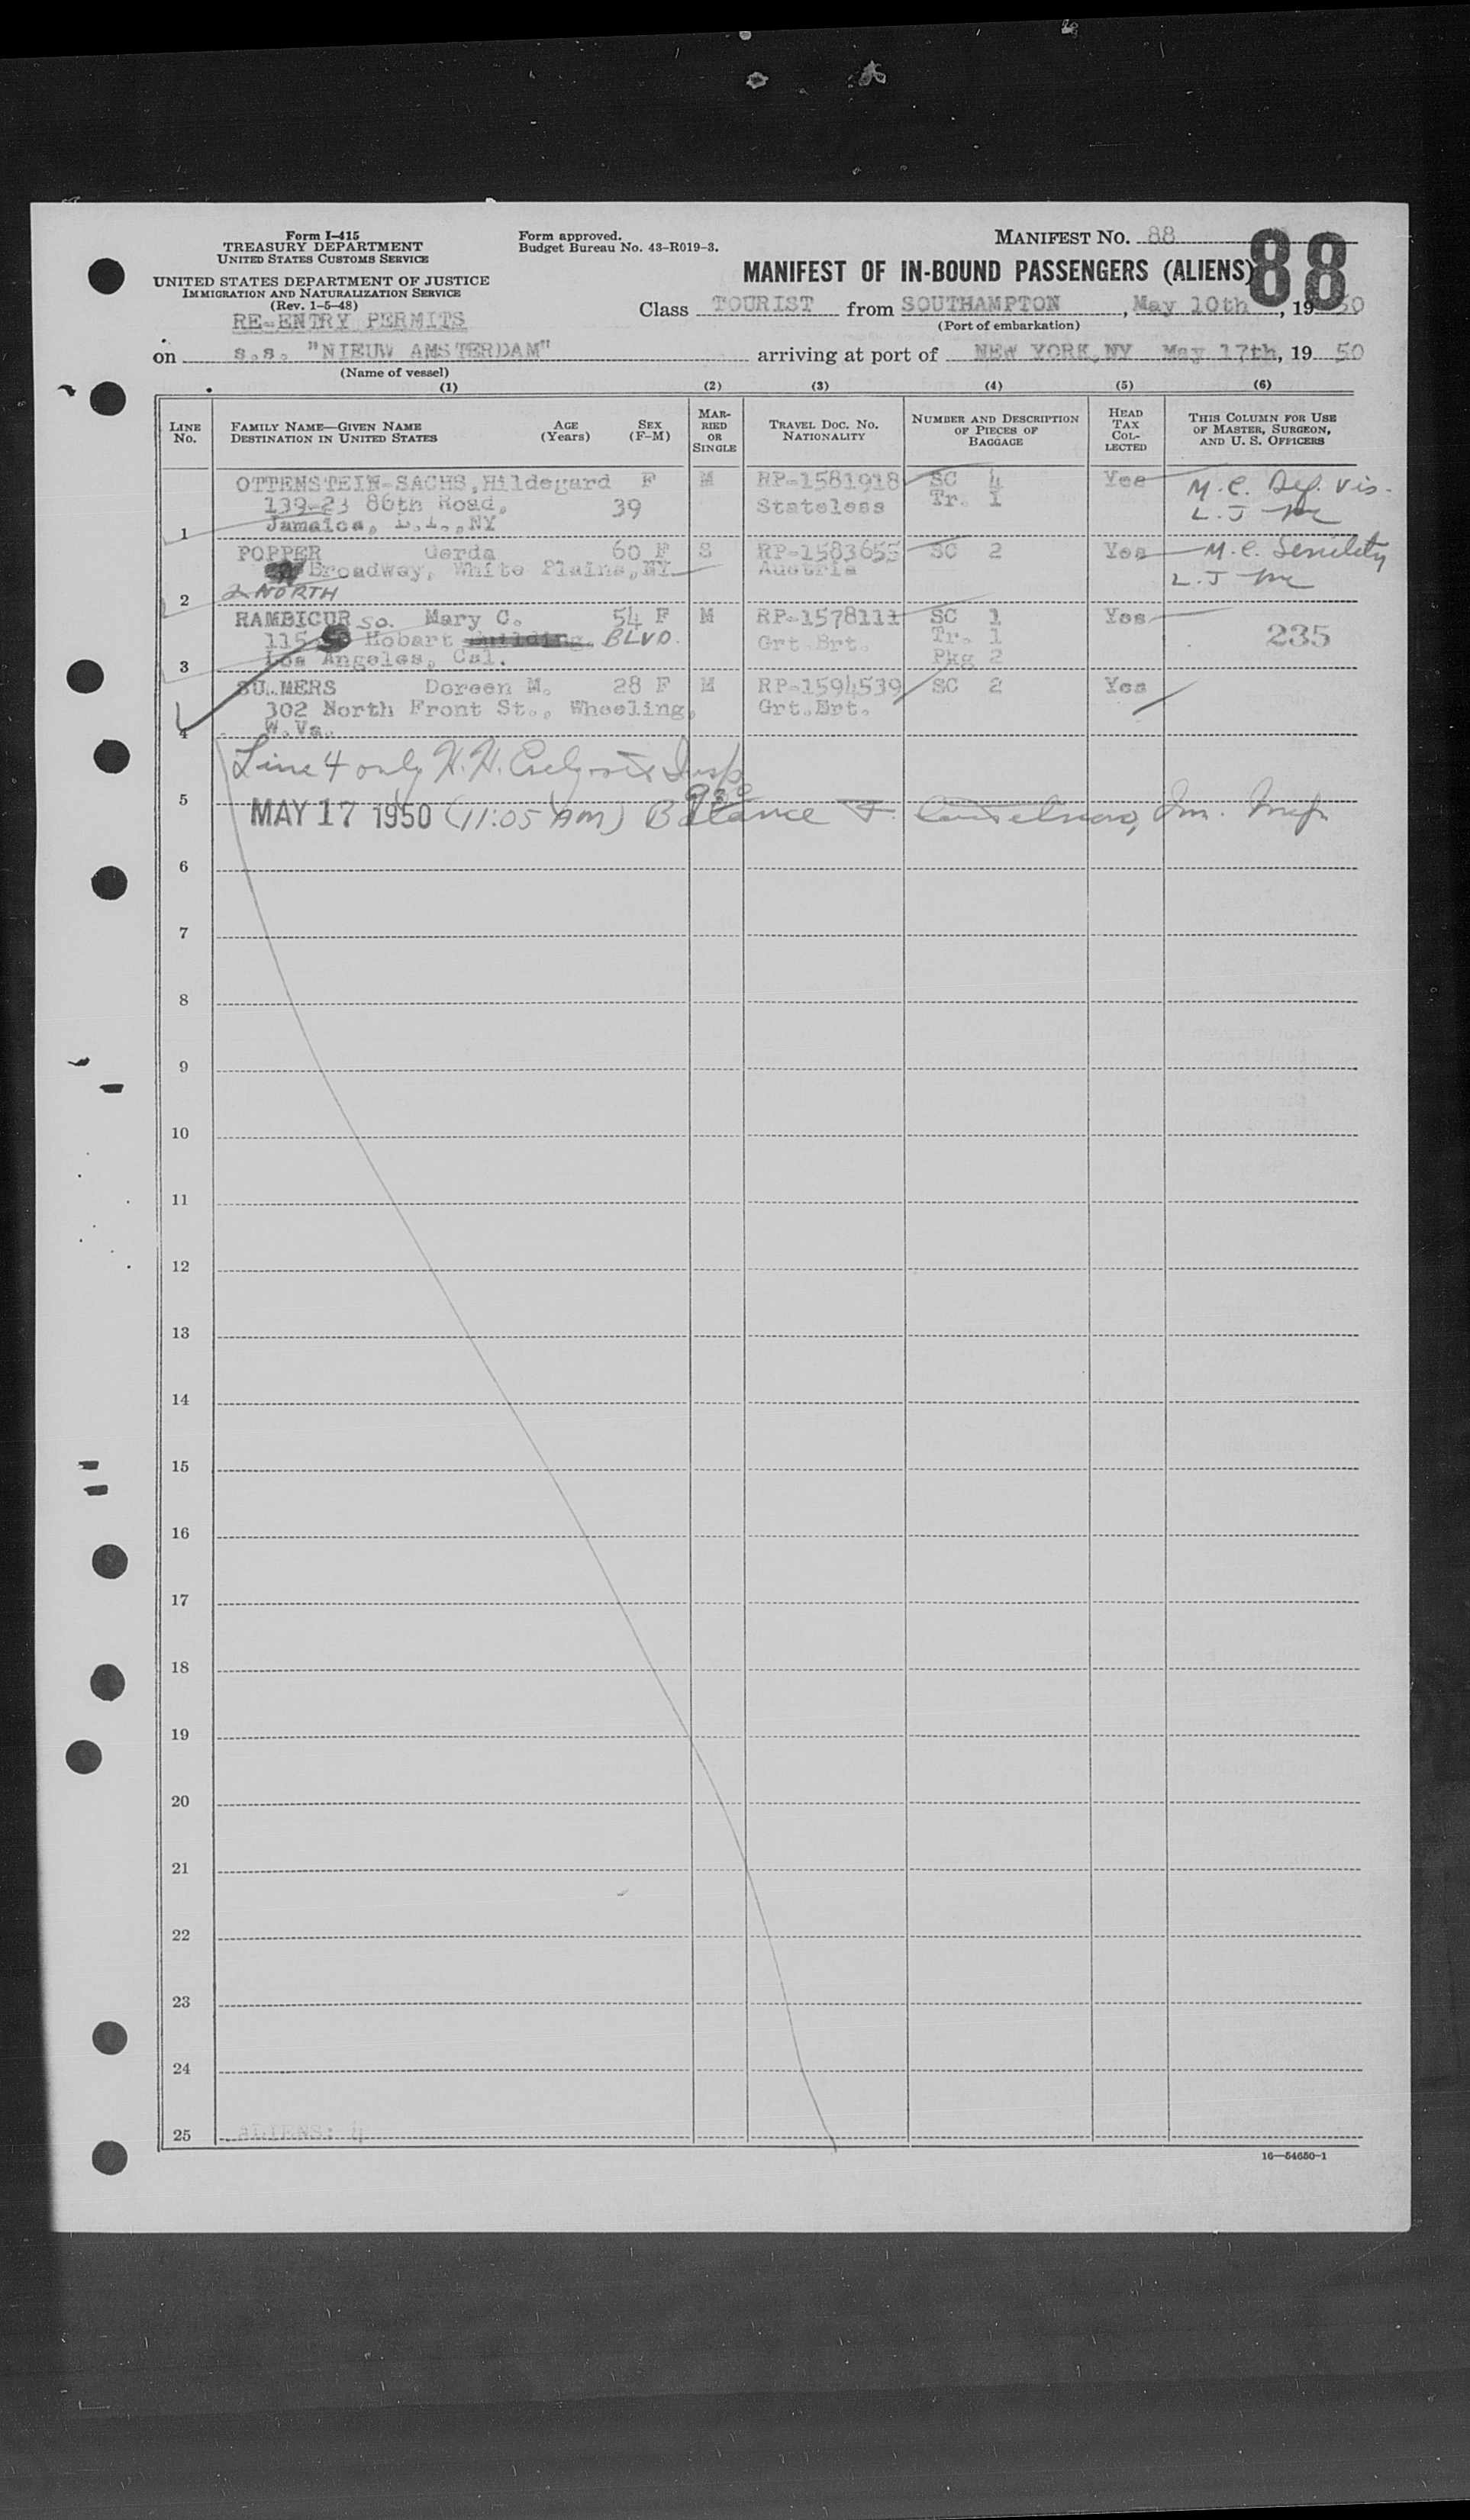 Form I-415
TREASURY DEPARTMENT
UNITED STATES CUSTOMS SERVICE
UNITED STATES DEPARTMENT OF JUSTICE
IMMIGRATION AND NATURALIZATION SERVICE
(Rev. 1-5-48)
RE-ENTRY PERMITS
Form approved.
Budget Bureau No. 43-R019-3.
MANIFEST NO. 88
88
MANIFEST OF IN-BOUND PASSENGERS (ALIENS)
Class TOURIST from SOUTHAMPTON, May 10th, 1950
(Port of embarkation)
on s.s. "NIEUW AMSTERDAM" arriving at port of NEW YORK,NY May 17th, 19 50
(Name of vessel)
(1) (2) (3) (4) (5) (6)
LINE No. FAMILY NAME—GIVEN NAME DESTINATION IN UNITED STATES AGE (Years) SEX (F-M) MARRIED OR SINGLE TRAVEL DOC. NO. NATIONALITY NUMBER AND DESCRIPTION OF PIECES OF BAGGAGE HEAD TAX COLLECTED THIS COLUMN FOR USE OF MASTER, SURGEON, AND U. S. OFFICERS
OTTENSTEIN-SACHS,Hildegard F M RP-1581918 SC 4 Yes M.C. Def. Vis.
139-23 86th Road, 39 Stateless Tr. 1 L.J
1 Jamaica, L.I.,NY
POPPER Gerda 60 F S RP-1583655 SC 2 Yes M.C. Senility
Broadway, White Plains,NY Austria L.J
2 2 NORTH
RAMBICUR Mary C. 54 F M RP-1578111 SC 1 Yes
115 So. Hobart Building BLVD. Grt.Brt. Tr. 1 235
3 Los Angeles, Cal. Pkg 2
SUMMERS Doreen M. 28 F M RP-1594539 SC 2 Yes
302 North Front St., Wheeling, Grt.Brt.
4 W.Va.
Line 4 only H.H. Insp
5
MAY 17 1950 (11:05 AM) Balance F. Im. Insp
6
7
8
9
10
11
12
13
14
15
16
17
18
19
20
21
22
23
24
25 ALIENS: 4
16—54650-1